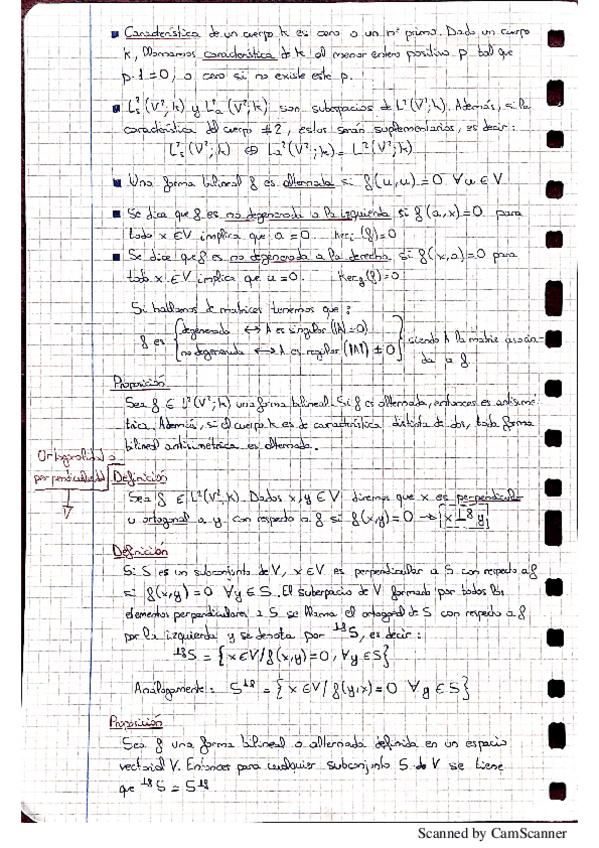 Característica de un cuerpo k es cero o un nº primo. Dado un cuerpo
k, llamamos característica de k al menor entero positivo p tal que
p·1=0, o cero si no existe este p.
L²ₛ(V²;k) y L²ₐ(V²;k) son subespacios de L²(V²;k). Además, si la
característica del cuerpo ≠2, estos serán suplementarios, es decir:
L²ₛ(V²;k) ⊕ L²ₐ(V²;k) = L²(V²;k)
Una forma bilineal f es alternada si f(u,u)=0 ∀u∈V
Se dice que f es no degenerada a la izquierda si f(a,x)=0 para
todo x∈V implica que a=0. Ker (f)=0
Se dice que f es no degenerada a la derecha si f(x,a)=0 para
todo x∈V implica que u=0. Ker (f)=0
Si hablamos de matrices tenemos que:
f es { degenerada ↔ A es singular (|A|=0)
no degenerada ↔ A es regular (|A|≠0) } siendo A la matriz asocia-
da a f
Proposición
Sea f ∈ L²(V²;k) una forma bilineal. Si f es alternada, entonces es antisimé-
trica. Además, si el cuerpo k es de característica distinta de dos, toda forma
bilineal antisimétrica es alternada.
Ortogonalidad o
perpendicularidad
Definición
Sea f ∈ L²(V²;k). Dados x,y∈V diremos que x es perpendicular
u ortogonal a y con respecto a f si f(x,y)=0 → x ⊥ᶠ y
Definición
Si S es un subconjunto de V, x∈V es perpendicular a S con respecto a f
si f(x,y)=0 ∀y∈S. El subespacio de V formado por todos los
elementos perpendiculares a S se llama el ortogonal de S con respecto a f
por la izquierda y se denota por ⊥ᶠS, es decir:
⊥ᶠS = {x∈V/f(x,y)=0, ∀y∈S}
Análogamente: S⊥ᶠ = {x∈V/f(y,x)=0 ∀y∈S}
Proposición
Sea f una forma bilineal o alternada definida en un espacio
vectorial V. Entonces para cualquier subconjunto S de V se tiene
que ⊥ᶠS = S⊥ᶠ
Scanned by CamScanner